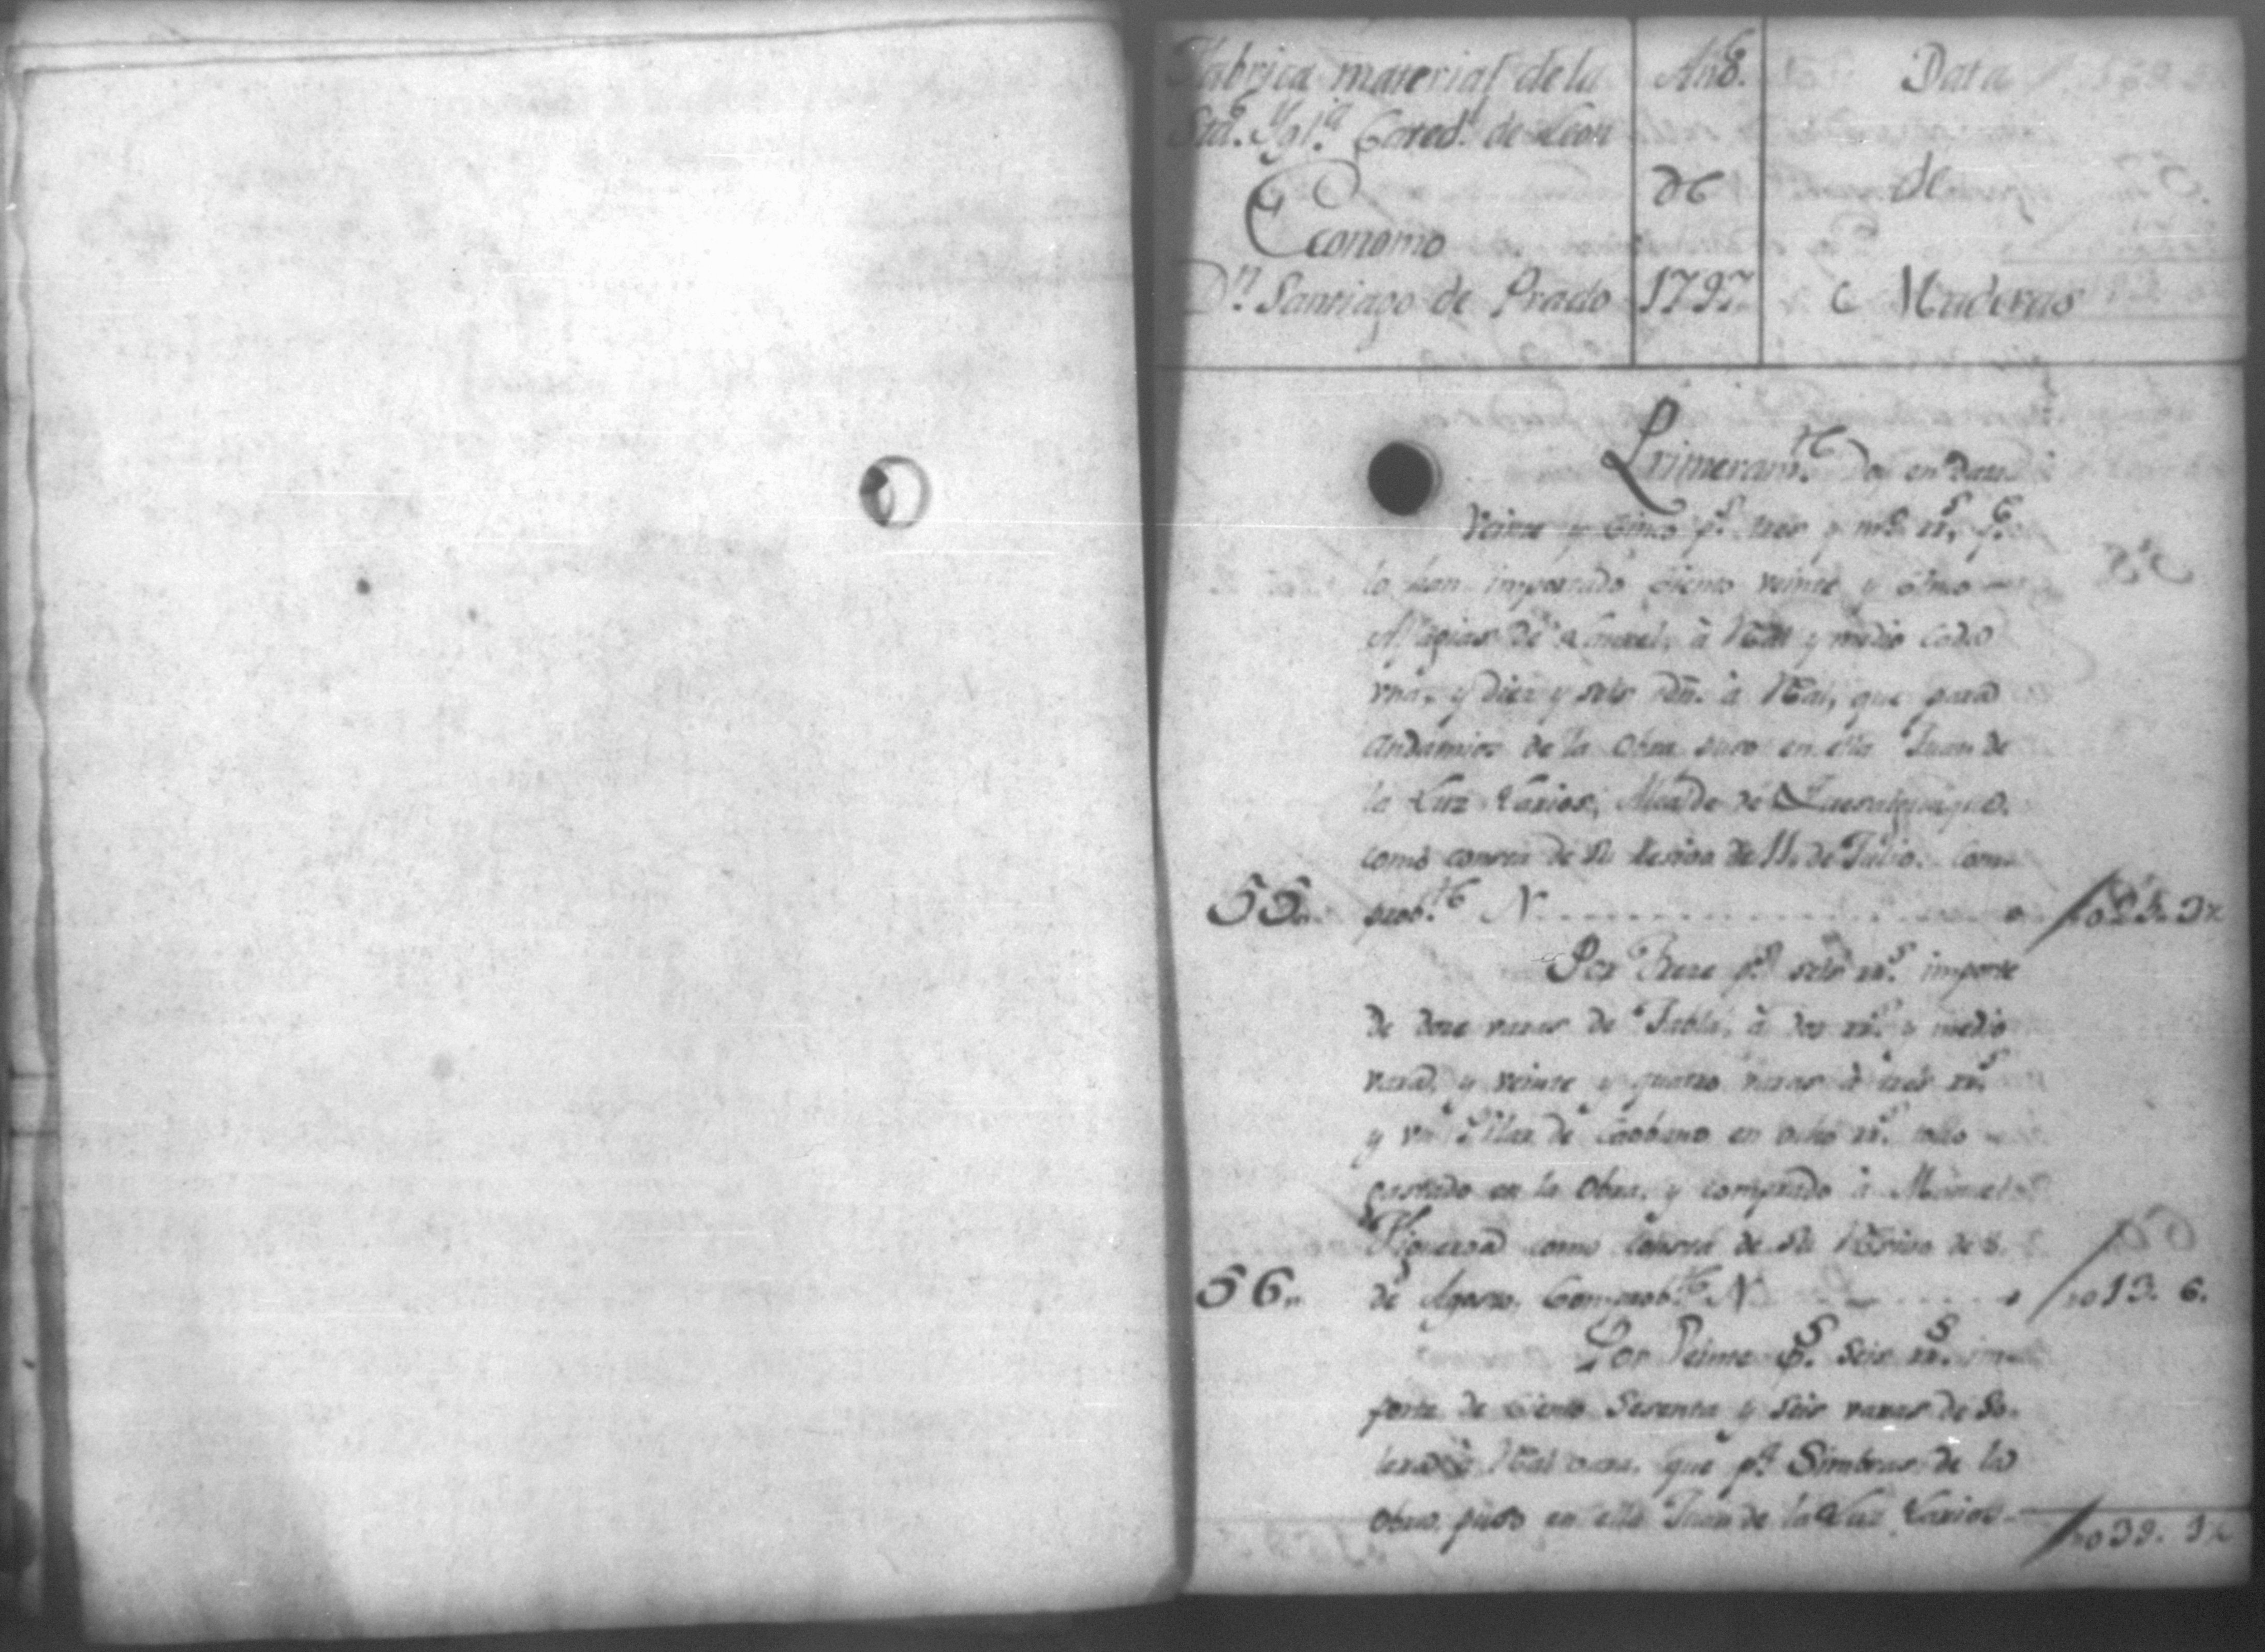 Fabrica material de la
Sta. Ygl.ª Cated.l de Leon
Economo
Dn. Santiago de Prado
Año.
de
1797
Data
de
Maderas
Primeram.te Doy en data
Veinte y Cinco p.s tres y m.º rr.s q.e
lo han importado Ciento veinte y Cinco
de Laurel, à Rral y medio Cada
vna, y diez y seis à Rral, que para
Andamios de la Obra puso en ella Juan de
la Luz Larios, Alcalde de
como consta de su resivo de 11. de Julio. Com-
55. prob.te N . . . . . . . . . . . . . . . . . . . . 025. 3½
Por Treze p.s seis rr.s importe
de doze varas de Tabla, à dos rr.s y medio
vara, y veinte y quatro varas à tres rr.s
y vn Pilar de Caobano en ocho rr.s todo
gastado en la Obra, y comprado à Manuel
Figueroa como consta de su Resivo de 8.
56. de Agosto, Comprob.te N . . . . . . . 013. 6.
Por Veinte p.s seis rr.s im-
porte de Ciento Sesenta y seis varas de So-
lera à Rral vara, que p.ª Simbras de la
Obra, puso en ella Juan de la Luz Larios-
039. 1½